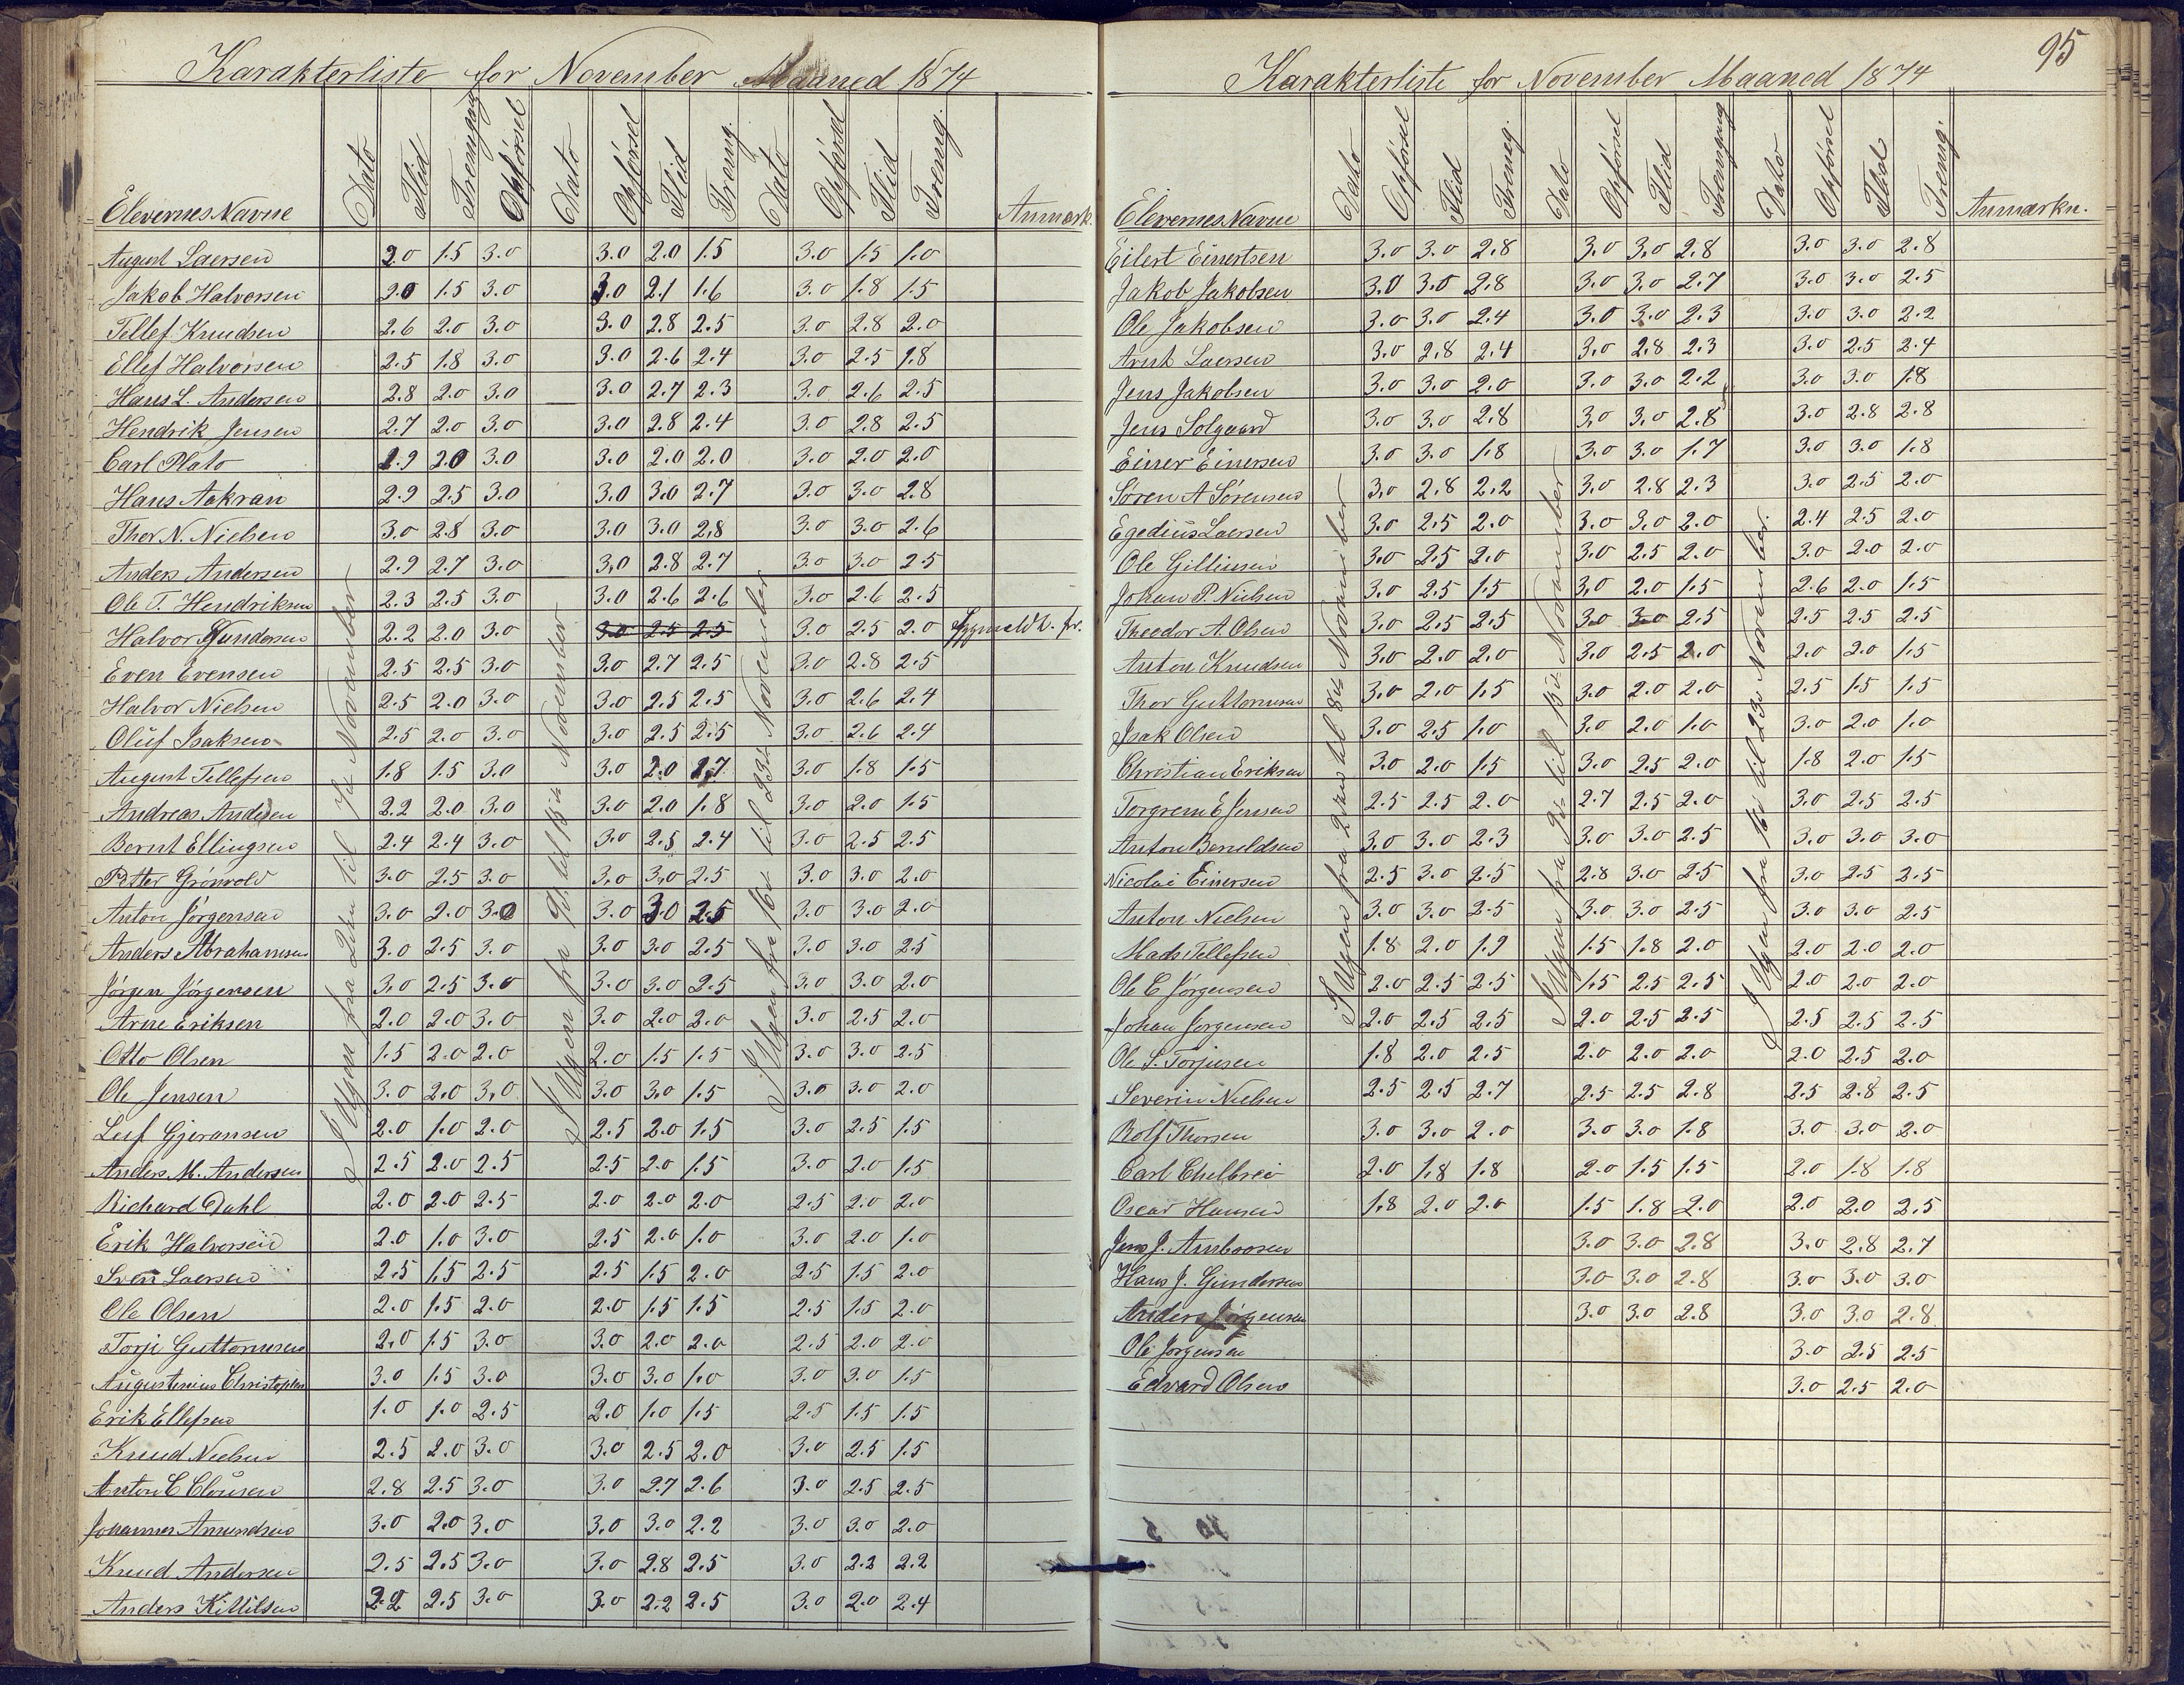 95
Karakterliste for November Maaned 1874
Elevernes Navne Dato Flid Fremgang Opførsel Dato Opførsel Flid Fremg. Dato Opførsel Flid Fremg. Anmærk.
I Ugen fra 2den til 7de November
I Ugen fra 9de til 15de November
I Ugen fra 16de til 23de November
August Laersen 2.0 1.5 3.0 3.0 2.0 1.5 3.0 1.5 1.0
Jakob Halvorsen 2.0 1.5 3.0 3.0 2.1 1.6 3.0 1.8 1.5
Tellef Knudsen 2.6 2.0 3.0 3.0 2.8 2.5 3.0 2.8 2.0
Ellef Halvorsen 2.5 1.8 3.0 3.0 2.6 2.4 3.0 2.5 1.8
Hans L. Andersen 2.8 2.0 3.0 3.0 2.7 2.3 3.0 2.6 2.5
Hendrik Jensen 2.7 2.0 3.0 3.0 2.8 2.4 3.0 2.8 2.5
Carl Plato 2.9 2.0 3.0 3.0 2.0 2.0 3.0 2.0 2.0
Hans Aakran 2.9 2.5 3.0 3.0 3.0 2.7 3.0 3.0 2.8
Thor N. Nielsen 3.0 2.8 3.0 3.0 3.0 2.8 3.0 3.0 2.6
Anders Andersen 2.9 2.7 3.0 3.0 2.8 2.7 3.0 3.0 2.5
Ole T. Hendriksen 2.3 2.5 3.0 3.0 2.6 2.6 3.0 2.6 2.5
Halvor Gundersen 2.2 2.0 3.0 3.0 2.5 2.5 3.0 2.5 2.0
Even Evensen 2.5 2.5 3.0 3.0 2.7 2.5 3.0 2.8 2.5
Halvor Nielsen 2.5 2.0 3.0 3.0 2.5 2.5 3.0 2.6 2.4
Oluf Isaksen 2.5 2.0 3.0 3.0 2.5 2.5 3.0 2.6 2.4
August Tellefsen 1.8 1.5 3.0 3.0 2.0 1.7 3.0 1.8 1.5
Andreas Andersen 2.2 2.0 3.0 3.0 2.0 1.8 3.0 2.0 1.5
Bernt Ellingsen 2.4 2.4 3.0 3.0 2.5 2.4 3.0 2.5 2.5
Petter Grönvold 3.0 2.5 3.0 3.0 3.0 2.5 3.0 3.0 2.0
Anton Jörgensen 3.0 2.0 3.0 3.0 3.0 2.5 3.0 3.0 2.0
Anders Abrahamsen 3.0 2.5 3.0 3.0 3.0 2.5 3.0 3.0 2.5
Jörgen Jörgensen 3.0 2.5 3.0 3.0 3.0 2.5 3.0 3.0 2.0
Arne Eriksen 2.0 2.0 3.0 3.0 2.0 2.0 3.0 2.5 2.0
Otto Olsen 1.5 2.0 2.0 2.0 1.5 1.5 3.0 3.0 2.5
Ole Jensen 3.0 2.0 3.0 3.0 3.0 1.5 3.0 3.0 2.0
Leif Gjeransen 2.0 1.0 2.0 2.5 2.0 1.5 3.0 2.5 1.5
Anders M. Andersen 2.5 2.0 2.5 2.5 2.0 1.5 3.0 2.0 1.5
Richard Dahl 2.0 2.0 2.5 2.0 2.0 2.0 2.5 2.0 2.0
Erik Halvorsen 2.0 1.0 3.0 2.5 2.0 1.0 3.0 2.0 1.0
Sven Laersen 2.5 1.5 2.5 2.5 1.5 2.0 2.5 1.5 2.0
Ole Olsen 2.0 1.5 2.0 2.0 1.5 1.5 2.5 1.5 2.0
Torje Guttormsen 2.0 1.5 3.0 3.0 2.0 2.0 2.5 2.0 2.0
Augustinius Christophsen 3.0 1.5 3.0 3.0 3.0 1.0 3.0 3.0 1.5
Erik Ellefsen 1.0 1.0 2.5 2.0 1.0 1.5 2.5 1.5 1.5
Knud Nielsen 2.5 2.0 3.0 3.0 2.5 2.0 3.0 2.5 1.5
Anton C Clausen 2.8 2.5 3.0 3.0 2.7 2.6 3.0 2.5 2.5
Johannes Amundsen 3.0 2.0 3.0 3.0 3.0 2.2 3.0 3.0 2.0
Knud Andersen 2.5 2.5 3.0 3.0 2.8 2.5 3.0 2.2 2.2
Anders Killilsen 2.2 2.5 3.0 3.0 2.2 2.5 3.0 2.0 2.4
Karakterliste for November Maaned 1874
Elevernes Navne Dato Opførsel Flid Fremg. Dato Opførsel Flid Fremgang Dato Opførsel Flid Fremg. Anmærkn.
I Ugen fra 2den til 8de November
I Ugen fra 9de til 15de November
I Ugen fra 16de til 23de November
Eilert Einertsen 3.0 3.0 2.8 3.0 3.0 2.8 3.0 3.0 2.8
Jakob Jakobsen 3.0 3.0 2.8 3.0 3.0 2.7 3.0 3.0 2.5
Ole Jakobsen 3.0 3.0 2.4 3.0 3.0 2.3 3.0 3.0 2.2
Arnt Laersen 3.0 2.8 2.4 3.0 2.8 2.3 3.0 2.5 2.4
Jens Jakobsen 3.0 3.0 2.0 3.0 3.0 2.2 3.0 3.0 1.8
Jens Solgaard 3.0 3.0 2.8 3.0 3.0 2.8 3.0 2.8 2.8
Einer Einersen 3.0 3.0 1.8 3.0 3.0 1.7 3.0 3.0 1.8
Sören A Sörensen 3.0 2.8 2.2 3.0 2.8 2.3 3.0 2.5 2.0
Egedius Laersen 3.0 2.5 2.0 3.0 3.0 2.0 2.4 2.5 2.0
Ole Gilliusen 3.0 2.5 2.0 3.0 2.5 2.0 3.0 2.0 2.0
Johan P. Nielsen 3.0 2.5 1.5 3.0 2.0 1.5 2.6 2.0 1.5
Theodor A. Olsen 3.0 2.5 2.5 3.0 3.0 2.5 2.5 2.5 2.5
Anton Knudsen 3.0 2.0 2.0 3.0 2.5 2.0 2.0 2.0 1.5
Thor Guttormsen 3.0 2.0 1.5 3.0 2.0 2.0 2.5 1.5 1.5
Isak Olsen 3.0 2.5 1.0 3.0 2.0 1.0 3.0 2.0 1.0
Christian Eriksen 3.0 2.0 1.5 3.0 2.5 2.0 1.8 2.0 1.5
Torgrem E Jensen 2.5 2.5 2.0 2.7 2.5 2.0 3.0 2.5 2.5
Anton Berneldsen 3.0 3.0 2.3 3.0 3.0 2.5 3.0 3.0 3.0
Nicolai Einersen 2.5 3.0 2.5 2.8 3.0 2.5 3.0 2.5 2.5
Anton Nielsen 3.0 3.0 2.5 3.0 3.0 2.5 3.0 3.0 2.5
Mads Tellefsen 1.8 2.0 1.9 1.5 1.8 2.0 2.0 2.0 2.0
Ole E Jörgensen 2.0 2.5 2.5 1.5 2.5 2.5 2.0 2.0 2.0
Johan Jorgensen 2.0 2.5 2.5 2.0 2.5 2.5 2.5 2.5 2.5
Ole S. Torjusen 1.8 2.0 2.5 2.0 2.0 2.0 2.0 2.5 2.0
Severin Nielsen 2.5 2.5 2.7 2.5 2.5 2.8 2.5 2.8 2.5
Rolf Thorsen 3.0 3.0 2.0 3.0 3.0 1.8 3.0 3.0 2.0
Carl 2.0 1.8 1.8 2.0 1.5 1.5 2.0 1.8 1.8
Oscar Hansen 1.8 2.0 2.0 1.5 1.8 2.0 2.0 2.0 2.5
Jens J. Ambrosen 3.0 3.0 2.8 3.0 2.8 2.7
Hans J. Gundersen 3.0 3.0 2.8 3.0 3.0 3.0
Anders Jörgensen 3.0 3.0 2.8 3.0 3.0 2.8
Ole Jorgensen 3.0 2.5 2.5
Edvard Olsen 3.0 2.5 2.0